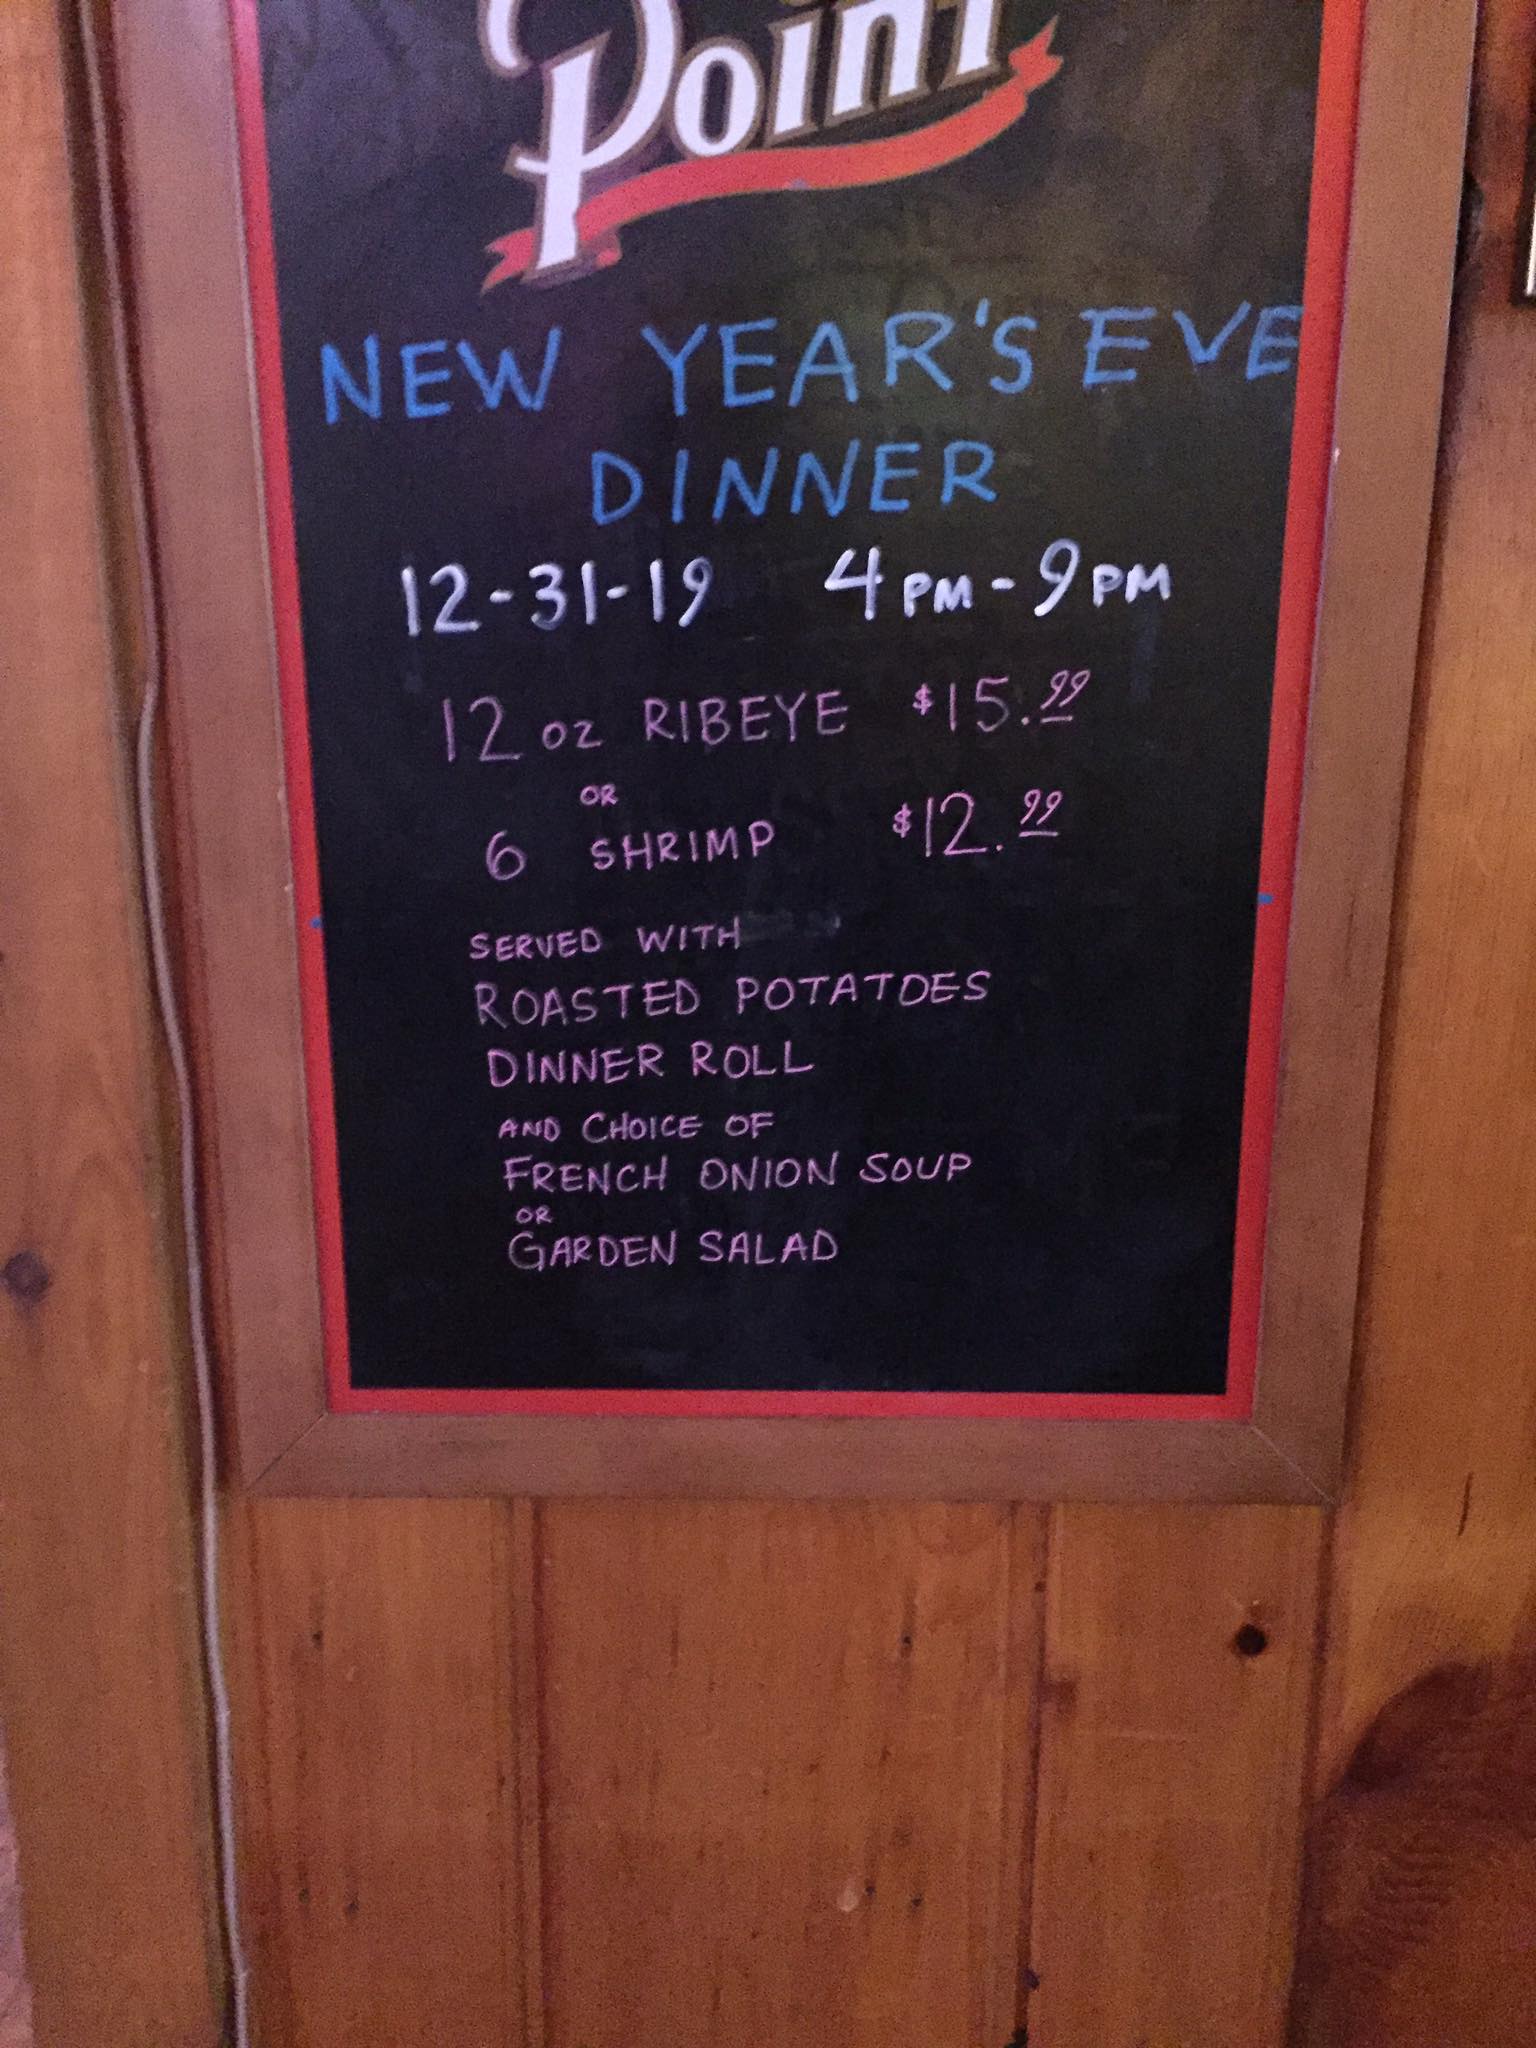 Point
NEW YEAR'S EVE
DINNER
12-31-19 4PM-9PM
12 oz RIBEYE $15.99
OR
6 SHRIMP $12.99
SERVED WITH
ROASTED POTATOES
DINNER ROLL
AND CHOICE OF
FRENCH ONION SOUP
OR
GARDEN SALAD